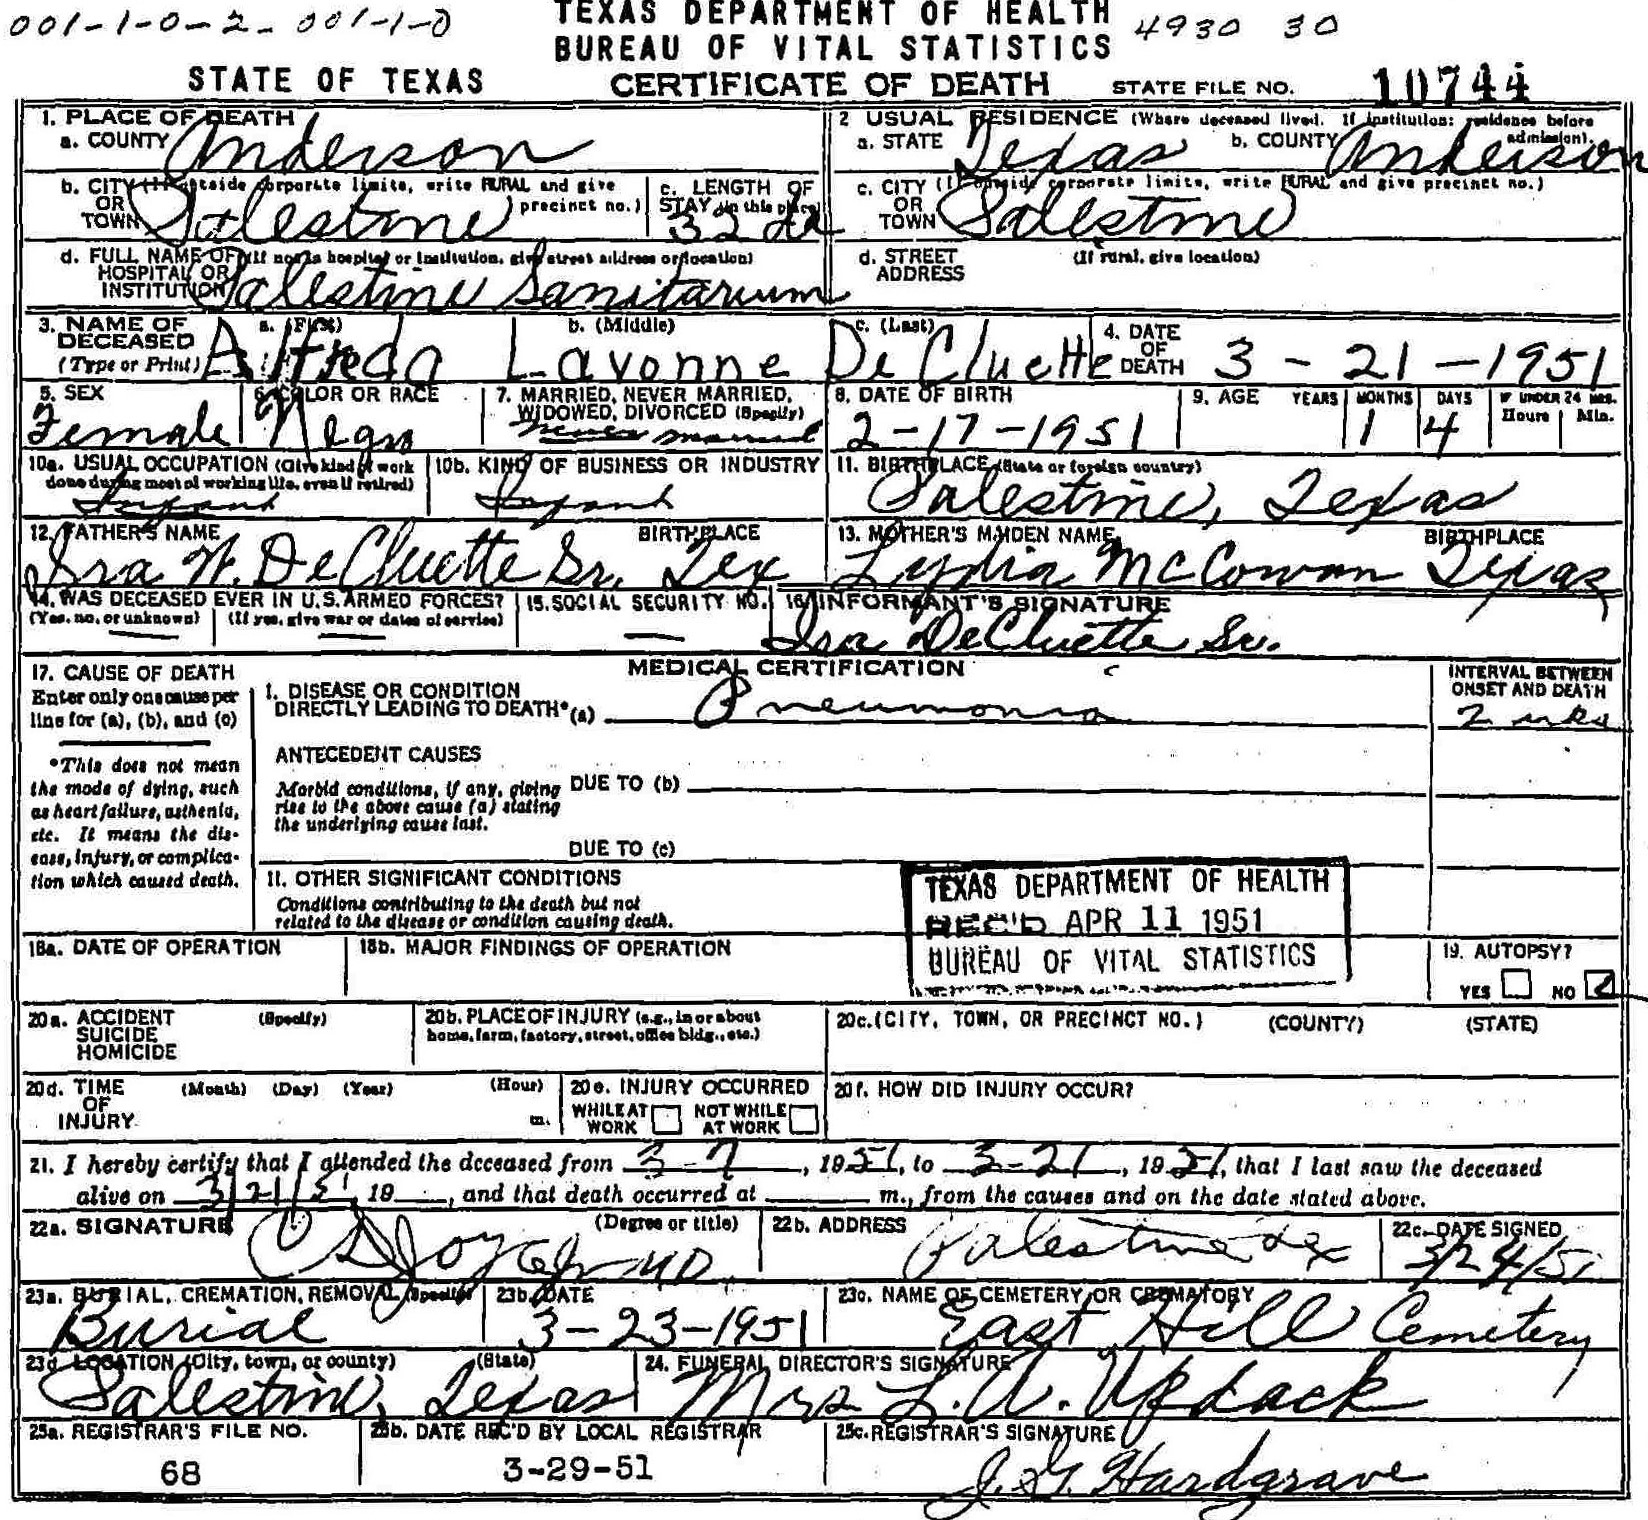 001-1-0-2- 001-1-0
TEXAS DEPARTMENT OF HEALTH
4930 30
BUREAU OF VITAL STATISTICS
STATE OF TEXAS CERTIFICATE OF DEATH STATE FILE NO. 10744
1. PLACE OF DEATH
a. COUNTY Anderson
2 USUAL RESIDENCE (Where deceased lived. If institution: residence before admission).
a. STATE Texas b. COUNTY Anderson
b. CITY (If outside corporate limits, write RURAL and give precinct no.)
OR
TOWN Palestine
c. LENGTH OF
STAY (in this place) 32 da
c. CITY (If outside corporate limits, write RURAL and give precinct no.)
OR
TOWN Palestine
d. FULL NAME OF (If not in hospital or institution, give street address or location)
HOSPITAL OR
INSTITUTION Palestine Sanitarium
d. STREET (If rural, give location)
ADDRESS
3. NAME OF a. (First) b. (Middle) c. (Last)
DECEASED
(Type or Print) Alfreda Lavonne DeCluette
4. DATE
OF
DEATH 3-21-1951
5. SEX
Female
6. COLOR OR RACE
Negro
7. MARRIED, NEVER MARRIED,
WIDOWED, DIVORCED (Specify)
never married
8. DATE OF BIRTH
2-17-1951
9. AGE YEARS MONTHS DAYS IF UNDER 24 HRS.
Hours Min.
1 4
10a. USUAL OCCUPATION (Give kind of work
done during most of working life, even if retired)
Infant
10b. KIND OF BUSINESS OR INDUSTRY
Infant
11. BIRTHPLACE (State or foreign country)
Palestine, Texas
12. FATHER'S NAME BIRTHPLACE
Ira W. DeCluette Sr. Tex
13. MOTHER'S MAIDEN NAME BIRTHPLACE
Lydia McCowan Texas
14. WAS DECEASED EVER IN U.S. ARMED FORCES?
(Yes, no, or unknown) (If yes, give war or dates of service)
— —
15. SOCIAL SECURITY NO.
—
16. INFORMANT'S SIGNATURE
Ira DeCluette Sr.
MEDICAL CERTIFICATION
17. CAUSE OF DEATH
Enter only one cause per
line for (a), (b), and (c)
*This does not mean
the mode of dying, such
as heart failure, asthenia,
etc. It means the dis-
ease, injury, or complica-
tion which caused death.
I. DISEASE OR CONDITION
DIRECTLY LEADING TO DEATH* (a) Pneumonia
INTERVAL BETWEEN
ONSET AND DEATH
2 wks
ANTECEDENT CAUSES
Morbid conditions, if any, giving
rise to the above cause (a) stating
the underlying cause last.
DUE TO (b)
DUE TO (c)
II. OTHER SIGNIFICANT CONDITIONS
Conditions contributing to the death but not
related to the disease or condition causing death.
TEXAS DEPARTMENT OF HEALTH
REC'D APR 11 1951
BUREAU OF VITAL STATISTICS
18a. DATE OF OPERATION
18b. MAJOR FINDINGS OF OPERATION
19. AUTOPSY?
YES NO
20a. ACCIDENT (Specify)
SUICIDE
HOMICIDE
20b. PLACE OF INJURY (e.g., in or about
home, farm, factory, street, office bldg., etc.)
20c. (CITY, TOWN, OR PRECINCT NO.) (COUNTY) (STATE)
20d. TIME (Month) (Day) (Year) (Hour)
OF
INJURY m.
20e. INJURY OCCURRED
WHILE AT WORK NOT WHILE AT WORK
20f. HOW DID INJURY OCCUR?
21. I hereby certify that I attended the deceased from 3-7, 1951, to 3-21, 1951, that I last saw the deceased
alive on 3/21/51, 19 , and that death occurred at m., from the causes and on the date stated above.
22a. SIGNATURE (Degree or title)
MD
22b. ADDRESS
Palestine Tex
22c. DATE SIGNED
3/24/51
23a. BURIAL, CREMATION, REMOVAL (Specify)
Burial
23b. DATE
3-23-1951
23c. NAME OF CEMETERY OR CREMATORY
East Hill Cemetery
23d LOCATION (City, town, or county) (State)
Palestine, Texas
24. FUNERAL DIRECTOR'S SIGNATURE
Mrs L.A. Updack
25a. REGISTRAR'S FILE NO.
68
25b. DATE REC'D BY LOCAL REGISTRAR
3-29-51
25c. REGISTRAR'S SIGNATURE
J. G. Hardgrave